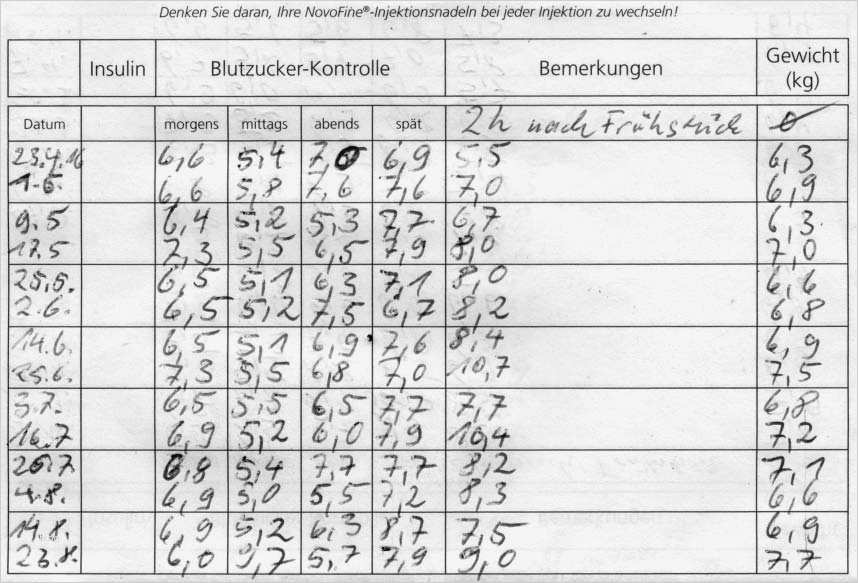 Denken Sie daran, Ihre NovoFine®-Injektionsnadeln bei jeder Injektion zu wechseln!
Insulin Blutzucker-Kontrolle Bemerkungen Gewicht (kg)
Datum morgens mittags abends spät 2h nach Frühstück Ø
23.4.16 6,6 5,4 7,0 6,9 5,5 6,3
1.5. 6,6 5,8 7,6 7,6 7,0 6,9
9.5 6,4 5,2 5,3 7,7 6,7 6,3
17.5 7,3 5,5 6,5 7,9 8,0 7,0
25.5. 6,5 5,1 6,3 7,1 8,0 6,6
2.6. 6,5 5,2 7,5 6,7 8,2 6,8
14.6. 6,5 5,1 6,9 7,6 8,4 6,9
25.6. 7,3 5,5 6,8 7,0 10,7 7,5
3.7. 6,5 5,5 6,5 7,7 7,7 6,8
16.7 6,9 5,2 6,0 7,9 10,4 7,2
26.7 6,8 5,4 7,7 7,7 8,2 7,1
4.8. 6,9 5,0 5,5 7,2 8,3 6,6
14.8. 6,9 5,2 6,3 8,7 7,5 6,9
23.8. 6,0 9,7 5,7 7,9 9,0 7,7